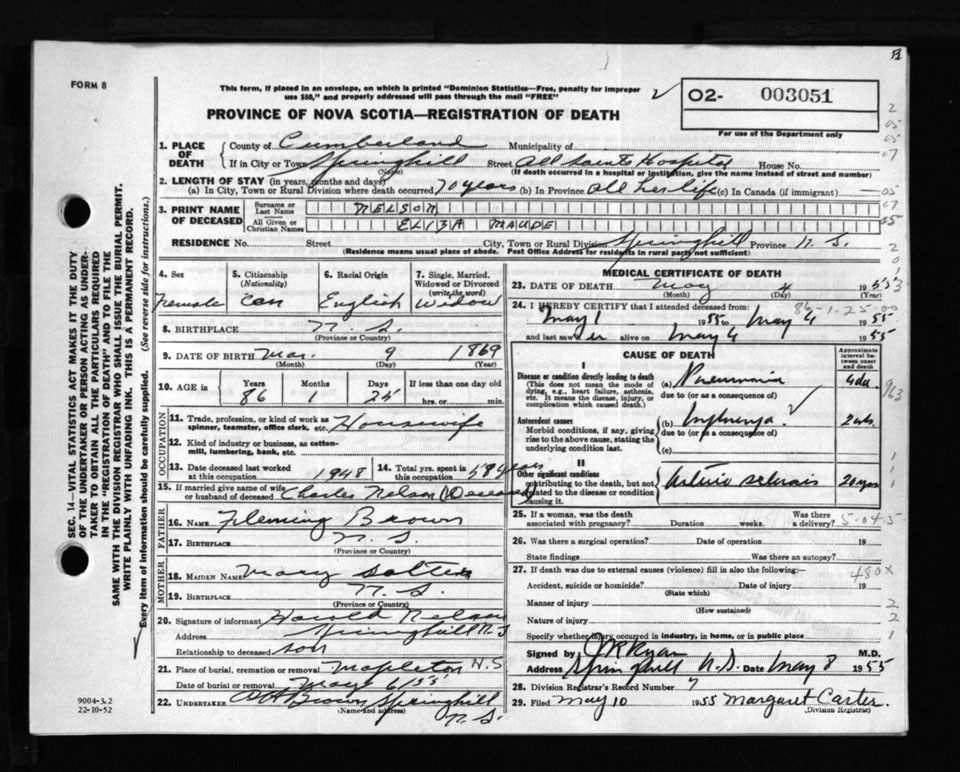 FORM 8
This form, if placed in an envelope, on which is printed "Dominion Statistics—Free, penalty for improper
use $50," and properly addressed will pass through the mail "FREE"
O2- 003051
For use of the Department only
PROVINCE OF NOVA SCOTIA—REGISTRATION OF DEATH
1. PLACE OF DEATH
County of Cumberland Municipality of
If in City or Town Springhill Street All Saints Hospital House No.
(Name) (If death occurred in a hospital or institution, give the name instead of street and number)
2. LENGTH OF STAY (in years, months and days)
(a) In City, Town or Rural Division where death occurred 70 years (b) In Province all her life (c) In Canada (if immigrant)
3. PRINT NAME OF DECEASED
Surname or Last Name NELSON
All Given or Christian Names ELIZA MAUDE
RESIDENCE No. Street City, Town or Rural Division Springhill Province N.S.
(Residence means usual place of abode. Post Office Address for residents in rural parts not sufficient)
4. Sex Female
5. Citizenship (Nationality) Can
6. Racial Origin English
7. Single, Married, Widowed or Divorced (write the word) Widow
8. BIRTHPLACE N.S.
(Province or Country)
9. DATE OF BIRTH Mar. 9 1869
(Month) (Day) (Year)
10. AGE in Years 86 Months 1 Days 25 If less than one day old hrs. or min.
OCCUPATION
11. Trade, profession, or kind of work as spinner, teamster, office clerk, etc. Housewife
12. Kind of industry or business, as cotton-mill, lumbering, bank, etc.
13. Date deceased last worked at this occupation 1948
14. Total yrs. spent in this occupation 58 years
15. If married give name of wife or husband of deceased Charles Nelson (Deceased)
FATHER
16. NAME Fleming Brown
17. BIRTHPLACE N.S.
(Province or Country)
MOTHER
18. MAIDEN NAME Mary
19. BIRTHPLACE N.S.
(Province or Country)
20. Signature of informant Harold Nelson
Address Springhill N.S
Relationship to deceased son
21. Place of burial, cremation or removal Mapleton N.S
Date of burial or removal May 6/55
22. UNDERTAKER Brown Springhill
(Name and address) N.S.
MEDICAL CERTIFICATE OF DEATH
23. DATE OF DEATH May 4 1955
(Month) (Day) (Year)
24. I HEREBY CERTIFY that I attended deceased from:
86-1-25-00
May 1 1955 to May 4 1955
and last saw her alive on May 4 1955
CAUSE OF DEATH
Approximate interval between onset and death
I
Disease or condition directly leading to death
(This does not mean the mode of dying, e.g., heart failure, asthenia, etc. It means the disease, injury, or complication which caused death.)
(a) Pneumonia 4 da.
due to (or as a consequence of)
Antecedent causes
Morbid conditions, if any, giving rise to the above cause, stating the underlying condition last.
(b) Influenza. 2 wks.
due to (or as a consequence of)
(c)
II
Other significant conditions
contributing to the death, but not related to the disease or condition causing it.
Arterio sclerosis 20 yrs
25. If a woman, was the death associated with pregnancy? Duration weeks. Was there a delivery? 5-04-5
26. Was there a surgical operation? Date of operation 19
State findings Was there an autopsy?
27. If death was due to external causes (violence) fill in also the following:— 480x
Accident, suicide or homicide? Date of injury 19
(State which)
Manner of injury
(How sustained)
Nature of injury
Specify whether injury occurred in industry, in home, or in public place
Signed by J R Ryan M.D.
Address Springhill N.S. Date May 8 1955
28. Division Registrar's Record Number 7
29. Filed May 10 1955 Margaret Carter.
(Division Registrar)
SEC. 14—VITAL STATISTICS ACT MAKES IT THE DUTY
OF THE UNDERTAKER OR PERSON ACTING AS UNDER-
TAKER TO OBTAIN ALL THE PARTICULARS REQUIRED
IN THE "REGISTRATION OF DEATH" AND TO FILE THE
SAME WITH THE DIVISION REGISTRAR WHO SHALL ISSUE THE BURIAL PERMIT.
WRITE PLAINLY WITH UNFADING INK. THIS IS A PERMANENT RECORD.
Every item of information should be carefully supplied. (See reverse side for instructions.)
9004-3.2
22-10-52